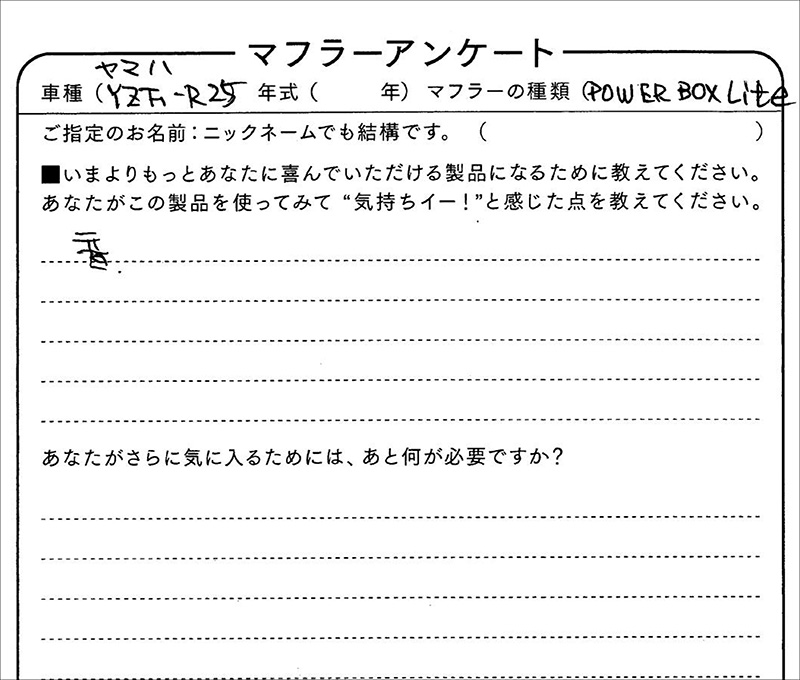 マフラーアンケート
ヤマハ
車種（YZF-R25 年式（ 年）マフラーの種類（POWER BOX Lite
ご指定のお名前：ニックネームでも結構です。（ ）
■いまよりもっとあなたに喜んでいただける製品になるために教えてください。
あなたがこの製品を使ってみて “気持ちイー！”と感じた点を教えてください。
音.
あなたがさらに気に入るためには、あと何が必要ですか？